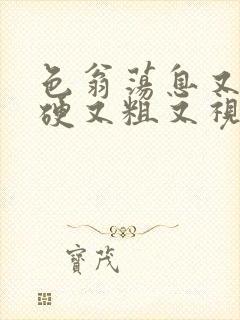 色翁荡息又
硬又粗又视
寳茂